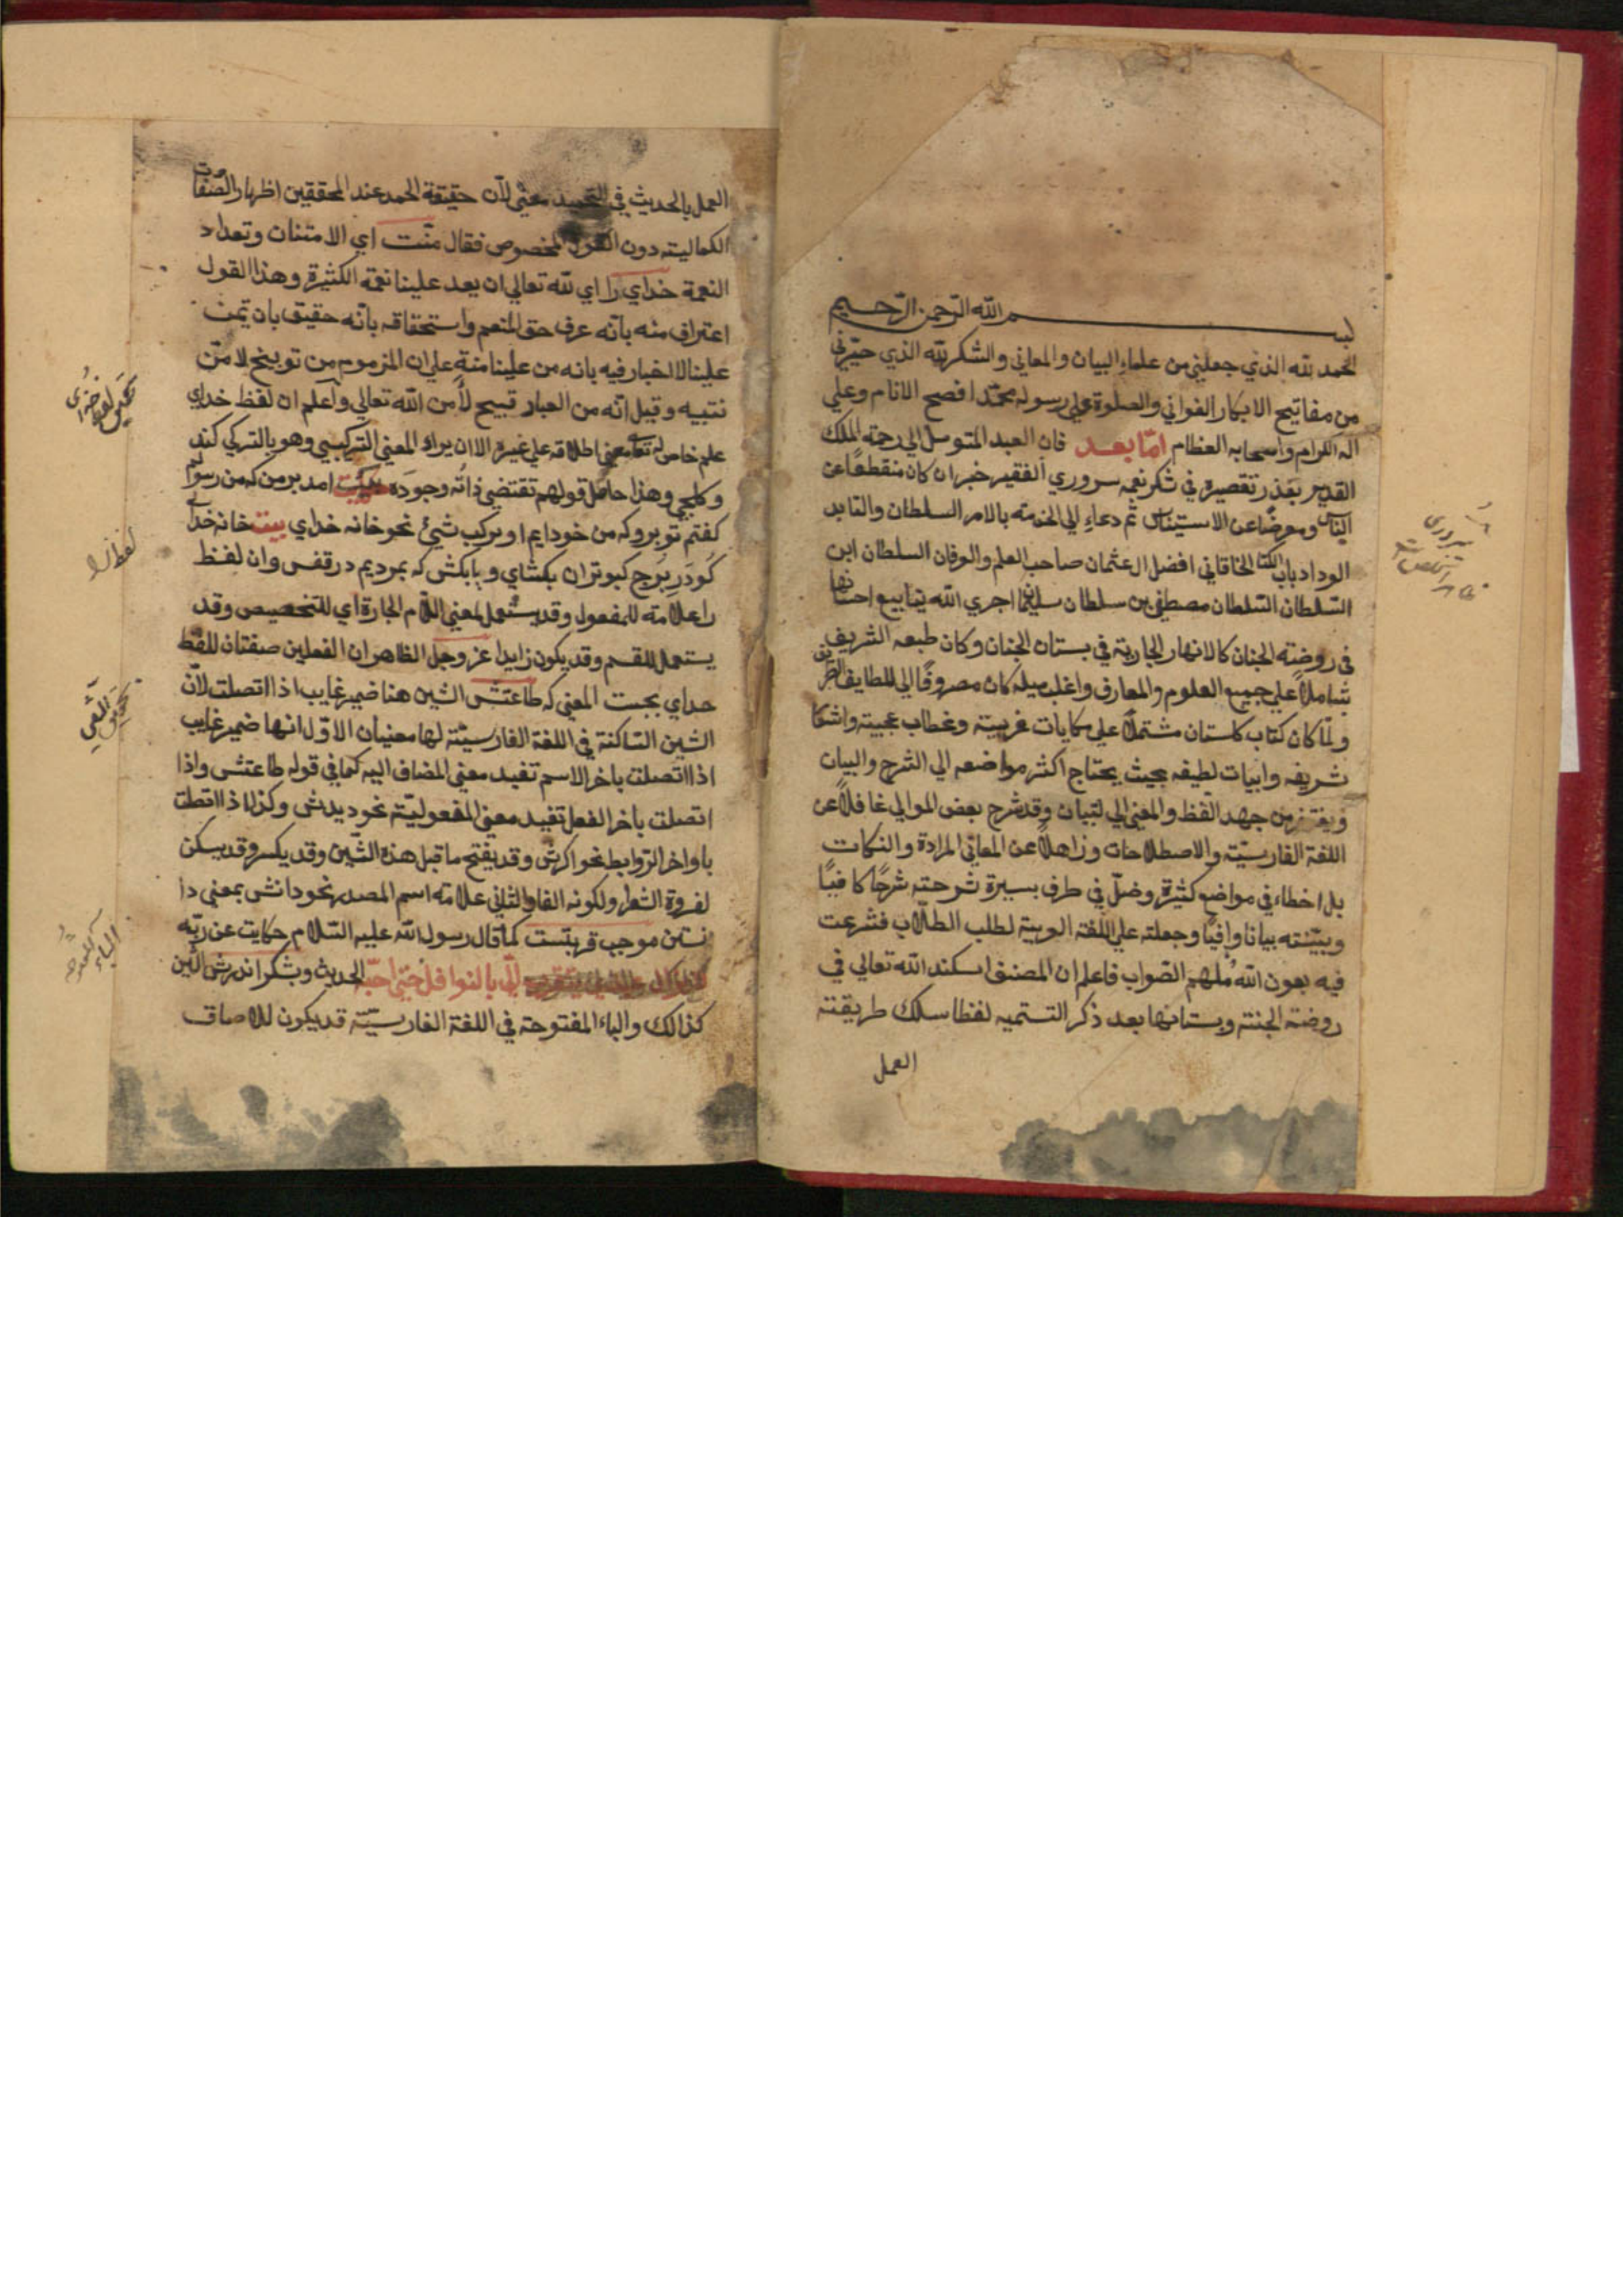 بسم الله الرحمن الرحيم
الحمد لله الذي جعلني من علماء البيان والمعاني والشكر لله الذي حيرني
من مفاتيح الابكار الغواني والصلوة علي رسوله محمد افصح الانام وعلي
اله الكرام واصحابه العظام امّا بعد فان العبد المتوسل الي رحمة الملك
القدير بعذر تقصيره في شكر نعمه سروري الفقير خبر ان كان منقطعًا عن
الناس ومعرضًا عن الاستيناس ثم دعاء الي الخدمة بالامر السلطان والتابد
الوداد باب الخاقاني افضل ال عثمان صاحب العلم والوفان السلطان ابن
السّلطان السّلطان مصطفي بن سلطان سليمان اجري الله ينابيع احسانها
في روضته الجنان كالانهار الجارية في بستان الجنان وكان طبعه الشريف
شاملاً علي جميع العلوم والمعارف واغلب ميله كان مصروفًا الي اللطايف
ولمّا كان كتاب كلستان مشتملاً علي حكايات غريبة وخطاب عجيبة واشعار
شريفه وابيات لطيفه بحيث يحتاج اكثر مواضعه الي الشرح والبيان
ويفتقر من جهد اللفظ والمعني الي لتبيان وقد شرح بعض الموالي غافلاً عن
اللغة الفارسيّة والاصطلاحات وزاهلاً عن المعاني المرادة والنكات
بل اخطاء في مواضع كثيرة وضلّ في طرف يسيرة شرحته شرحًا كافيًا
وبيّنته بيانا وافيًا وجعلته علي اللغة العربية لطلب الطلّاب فشرعت
فيه بعون الله مُلهم الصّواب فاعلم ان المصنف اسكنه الله تعالي في
روضة الجنة وبستانها بعد ذكر التسميه لفظا سلك طريقته
العمل
العمل بالحديث في التحميد معنًي لأن حقيقة الحمد عند المحققين اظهار الصفات
الكمالية دون القول المخصوص فقال منّت اي الامتنان وتعداد
النعمة خداي را اي لله تعالي ان يعد علينا نعمه الكثيرة وهذا القول
اعتراف منه بانه عرف حق المنعم واستحقاقه بانّه حقيق بان يمن
علينا لا اخبار فيه بانه من علينا منة علي ان المزموم من توبيخ لا من
تنبيه وقيل انّه من العبار قبيح لا من الله تعالي واعلم ان لفظ خداي
علم خاص له تعالي معني اطلاقه علي غيره الا ان يراد المعني التركيبي وهو بالتركي كند
وكلجي وهذا حاصل قولهم تقتضي ذاته وجوده بيت امد بر من كه من رسولم
كفتم تو برو كه من خودايم او يركب شيئ نحو خانه خداي بيت خانه خداي
كو در برج كبوتران بكشاي وبا بكش كه بمرديم در قفس وان لفظ
را علامة للمفعول وقد يستعمل لمعني اللام الجارة اي للتخصيص وقد
يستعمل للقسم وقد يكون زايدا عز وجل الظاهر ان الفعلين صفتان للفظ
خداي بحجت المعني كه طاعتش الشين هنا ضمير غايب اذا اتصلت لأن
الشين الساكنة في اللغة الفارسيّة لها معنيان الاوّل انها ضمير غايب
اذا اتصلت باخر الاسم تفيد معني المضاف اليه كما في قوله طاعتش واذا
اتصلت باخر الفعل تفيد معني المفعوليّة نحو ديدش وكذا اذا اتصلت
باواخر الروابط نحو اكرش وقد يفتح ما قبل هذه الشّين وقد يكسر وقد يسكن
لضرورة الشعر ولكونه الفا والثاني علامة اسم المصدر نحو دانش بمعني دا
نستن موجب قربتست كما قال رسول الله عليه السّلام حكايت عن ربّه
لا يزال عبدي يتقرب اليّ بالنوافل حتي احبّه الحديث وبشكر اندرش الشين
كذالك والباء المفتوحة في اللغة الفارسيّة قد يكون للالصاق
تحقيق لفظ خداي
لفظ را
تحقيق الشين
الباء المفتوحة